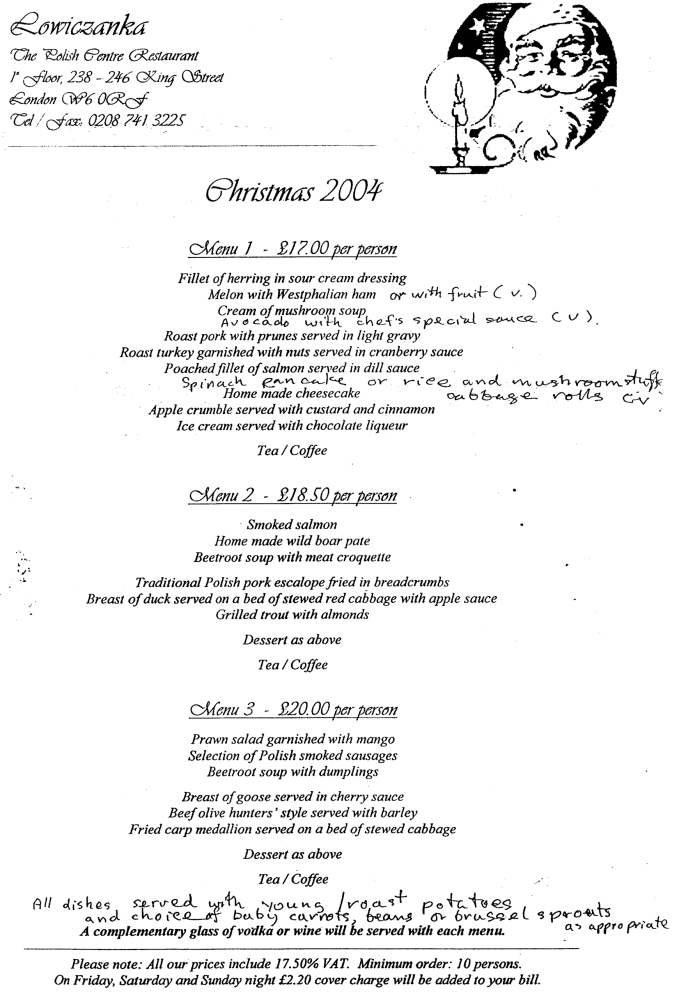 Lowiczanka
The Polish Centre Restaurant
1st Floor, 238 - 246 King Street
London W6 0RF
Tel / Fax: 0208 741 3225
Christmas 2004
Menu 1 - £17.00 per person
Fillet of herring in sour cream dressing
Melon with Westphalian ham or with fruit ( v. )
Cream of mushroom soup
Avocado with chef's special sauce ( v ).
Roast pork with prunes served in light gravy
Roast turkey garnished with nuts served in cranberry sauce
Poached fillet of salmon served in dill sauce
Spinach pancake or rice and mushroom stuff
Home made cheesecake cabbage rolls
Apple crumble served with custard and cinnamon
Ice cream served with chocolate liqueur
Tea / Coffee
Menu 2 - £18.50 per person
Smoked salmon
Home made wild boar pate
Beetroot soup with meat croquette
Traditional Polish pork escalope fried in breadcrumbs
Breast of duck served on a bed of stewed red cabbage with apple sauce
Grilled trout with almonds
Dessert as above
Tea / Coffee
Menu 3 - £20.00 per person
Prawn salad garnished with mango
Selection of Polish smoked sausages
Beetroot soup with dumplings
Breast of goose served in cherry sauce
Beef olive hunters' style served with barley
Fried carp medallion served on a bed of stewed cabbage
Dessert as above
Tea / Coffee
All dishes served with young / roast potatoes
and choice of baby carrots, beans or brussel sprouts
as appropriate
A complementary glass of vodka or wine will be served with each menu.
Please note: All our prices include 17.50% VAT. Minimum order: 10 persons.
On Friday, Saturday and Sunday night £2.20 cover charge will be added to your bill.